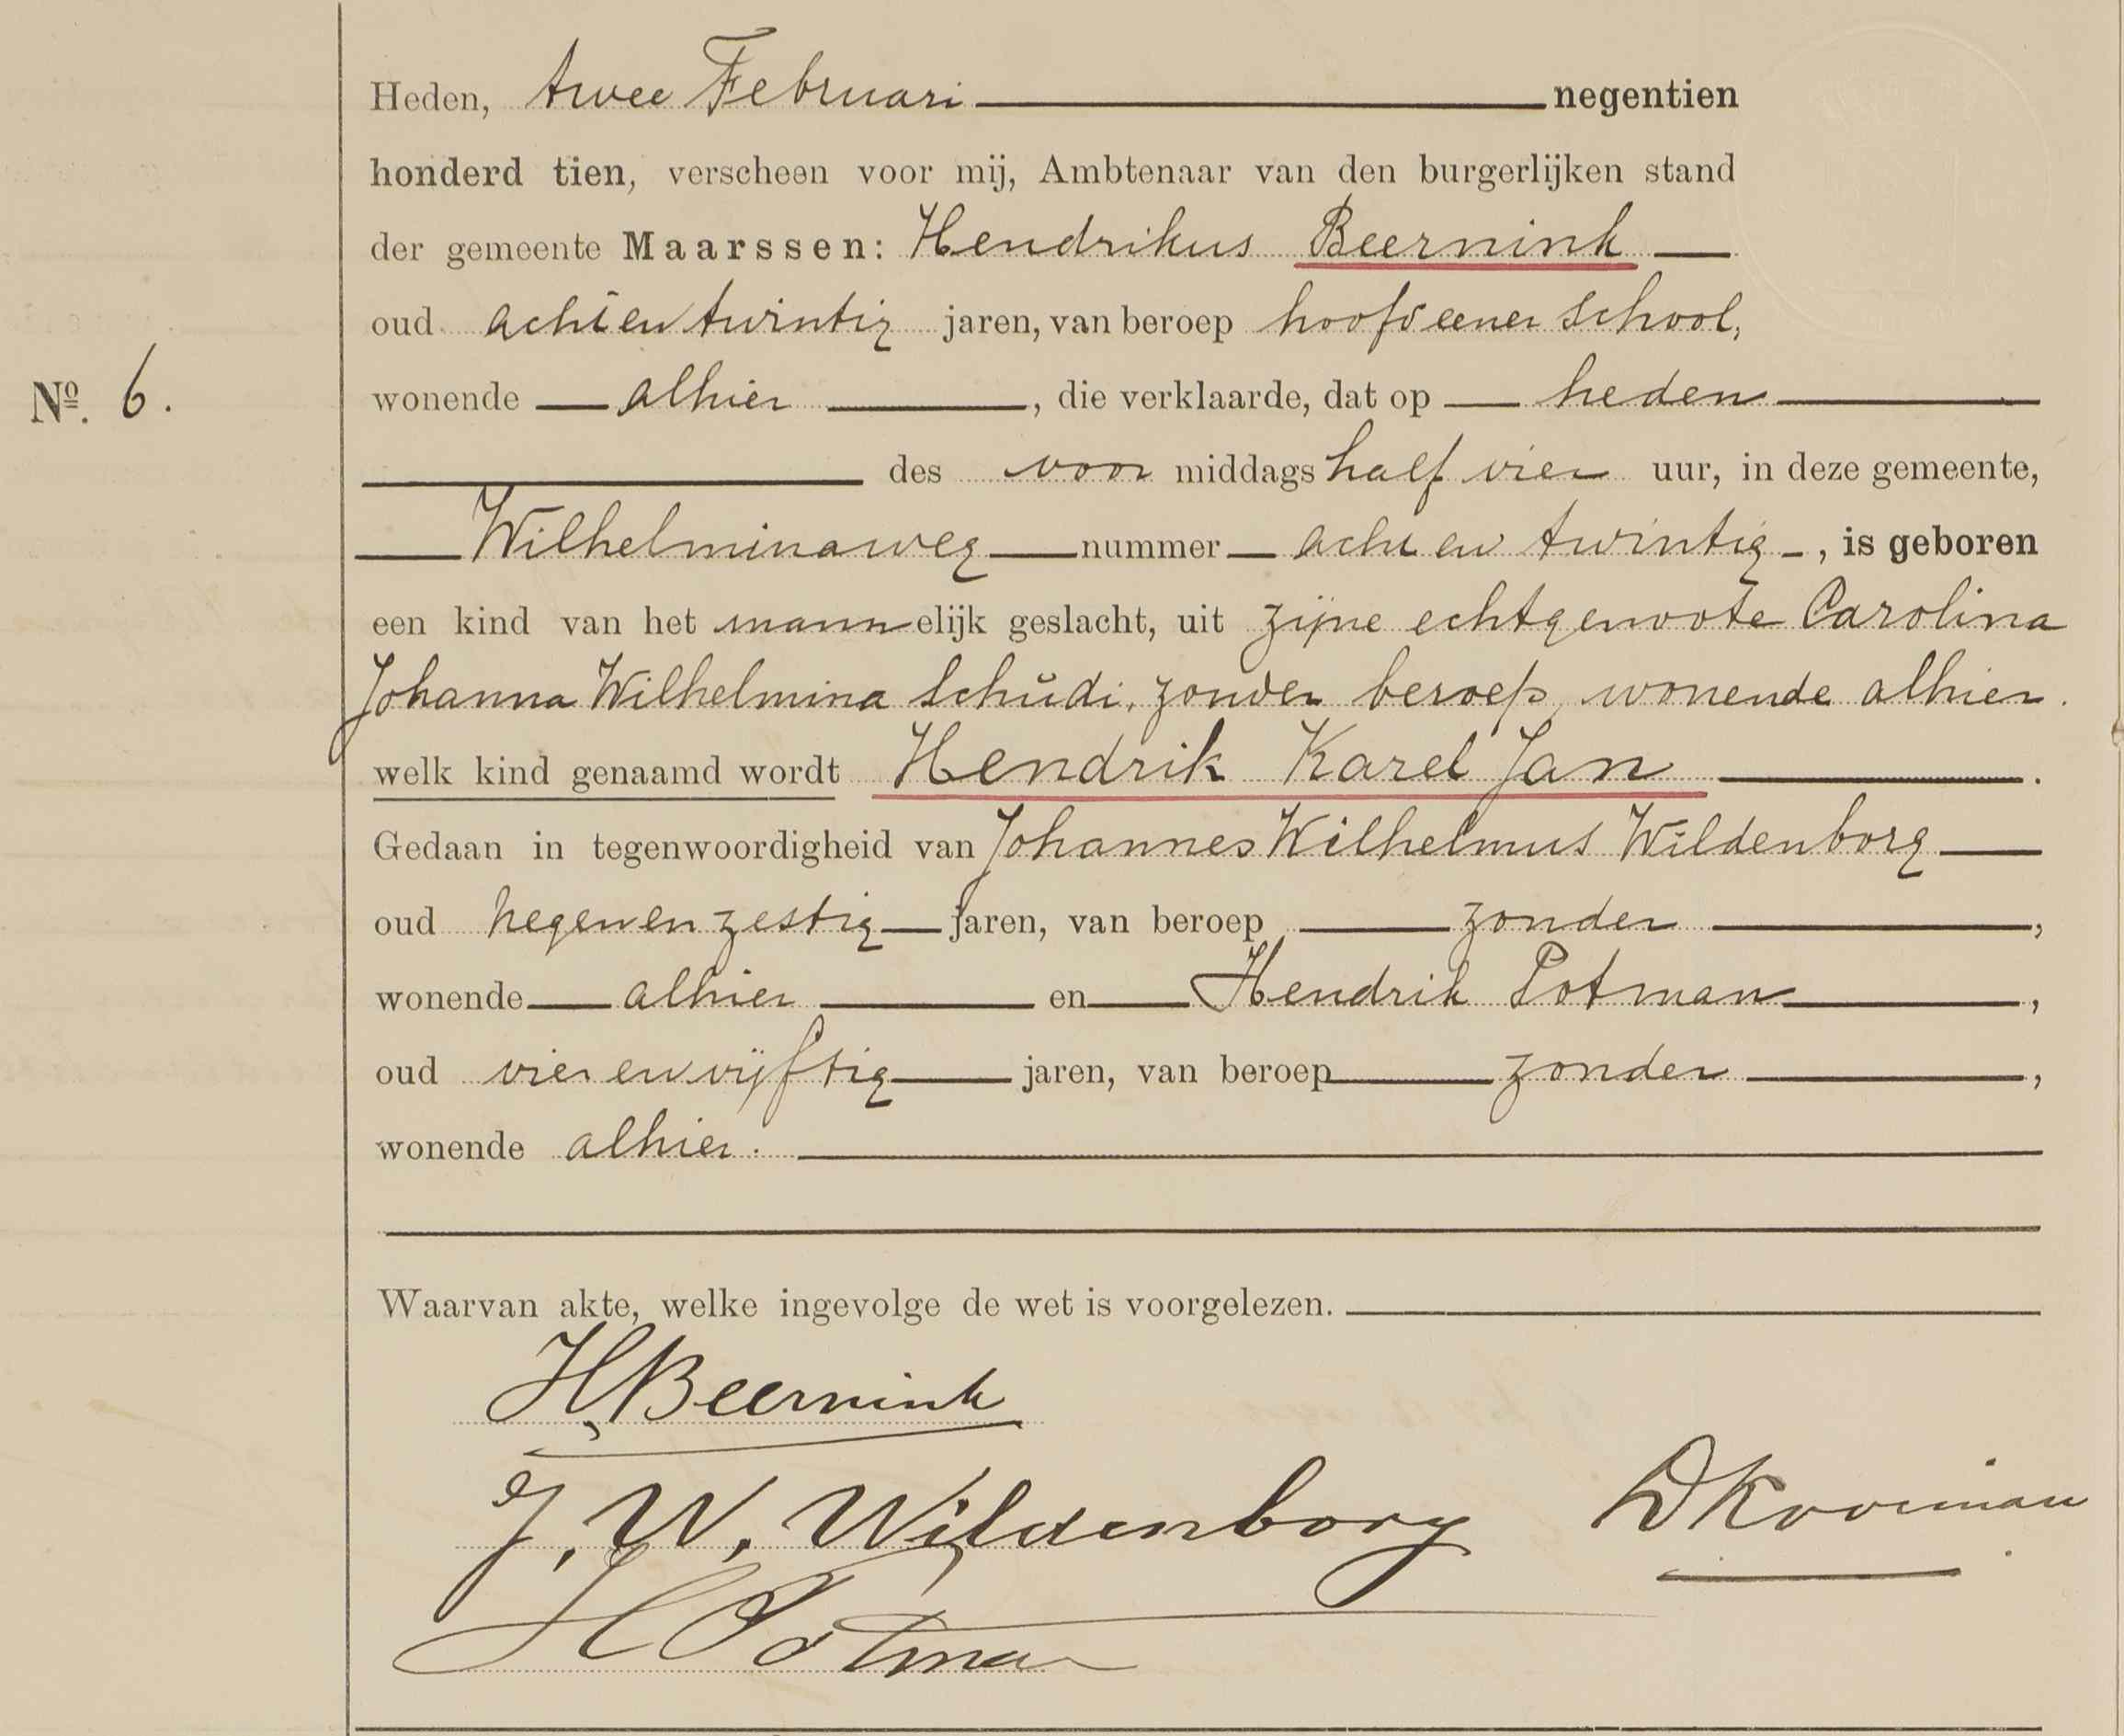 Heden, twee Februari negentien
honderd tien, verscheen voor mij, Ambtenaar van den burgerlijken stand
der gemeente Maarssen: Hendrikus Beernink
oud achtentwintig jaren, van beroep hoofd eener school,
No. 6.
wonende alhier, die verklaarde, dat op heden
des voor middags half vier uur, in deze gemeente,
Wilhelminaweg nummer acht en twintig, is geboren
een kind van het mannelijk geslacht, uit zijne echtgenoote Carolina
Johanna Wilhelmina Schudi, zonder beroep, wonende alhier.
welk kind genaamd wordt Hendrik Karel Jan.
Gedaan in tegenwoordigheid van Johannes Wilhelmus Wildenborg
oud negenenzestig jaren, van beroep zonder,
wonende alhier en Hendrik Potman,
oud vierenvijftig jaren, van beroep zonder,
wonende alhier.
Waarvan akte, welke ingevolge de wet is voorgelezen.
HBeernink
J. W. Wildenborg DKooiman
H Potman